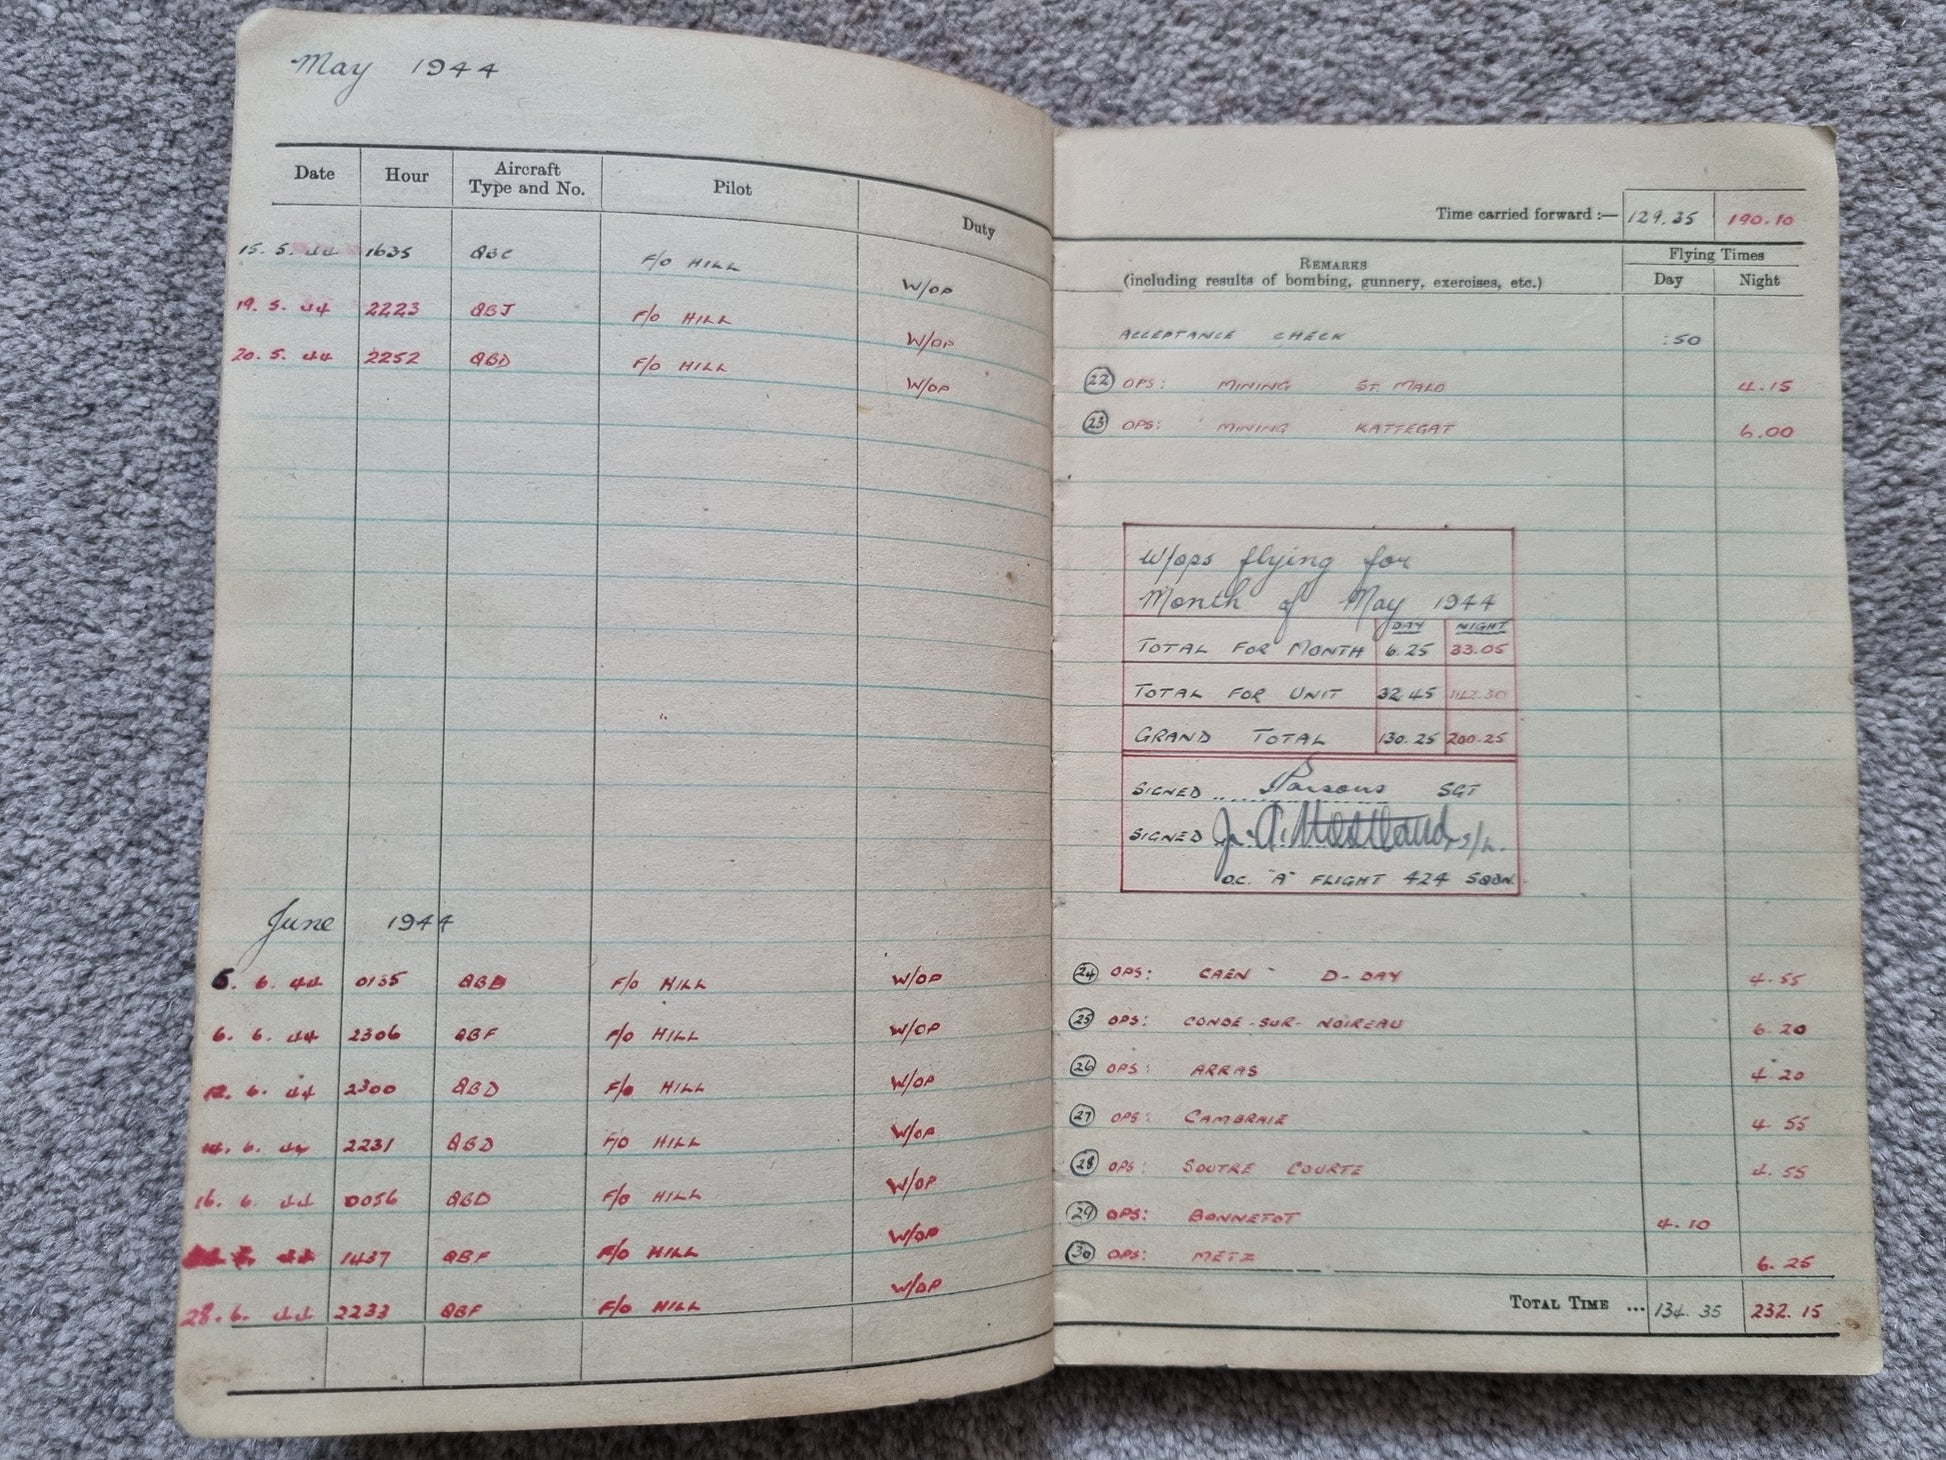 May 1944
Date Hour Aircraft Type and No. Pilot Duty
15. 5. 44 1635 QBC F/O HILL W/OP
19. 5. 44 2223 QBJ F/O HILL W/OP
20. 5. 44 2252 QBD F/O HILL W/OP
June 1944
6. 44 0135 F/O HILL W/OP
6. 6. 44 2306 QBF F/O HILL W/OP
12. 6. 44 2300 QBD F/O HILL W/OP
14. 6. 44 2231 QBD F/O HILL W/OP
16. 6. 44 0056 QBD F/O HILL W/OP
1437 QBF F/O HILL W/OP
28. 6. 44 2233 QBF F/O HILL W/OP
Time carried forward :— 129.35 190.10
REMARKS
(including results of bombing, gunnery, exercises, etc.)
Flying Times
Day Night
ACCEPTANCE CHECK :50
22 OPS: MINING ST. MALO 4.15
23 OPS: MINING KATTEGAT 6.00
W/ops flying for
Month of May 1944
DAY NIGHT
TOTAL FOR MONTH 6.25 33.05
TOTAL FOR UNIT 32.45 142.30
GRAND TOTAL 130.25 200.25
SIGNED Parsons SGT
SIGNED S/L.
O.C. "A" FLIGHT 424 SQDN.
24 OPS: CAEN - D-DAY 4.55
25 OPS: CONDE-SUR-NOIREAU 6.20
26 OPS: ARRAS 4.20
27 OPS: CAMBRAIE 4.55
28 OPS: SOUTRE COURTE 4.55
29 OPS: BONNETOT 4.10
30 OPS: METZ 6.25
TOTAL TIME ... 134.35 232.15